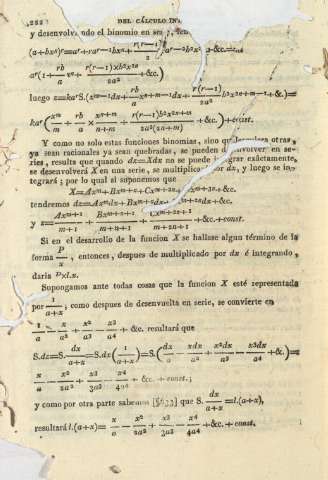 ,232 DEL CÁLCULO IN
y desenvolviendo el binomio en se
(a+bxⁿ)ʳ=aʳ+raʳ⁻¹bxⁿ+ r(r—1)/2 aʳ⁻²b²x²ⁿ+&c.=
aʳ(1+ rb/a xⁿ+ r(r—1)×b²x²ⁿ/2a² +&c.)
luego z=kaʳS.(xᵐ⁻¹dx+ rb/a xⁿ⁺ᵐ⁻¹dx+ r(r—1)/2a² b²x²ⁿ⁺ᵐ⁻¹+&.)=
kaʳ( xᵐ/m + rb/a × xⁿ⁺ᵐ/n+m + r(r—1)b²x²ⁿ⁺ᵐ/2a²(2n+m) +&c.)+const.
Y como no solo estas funciones binomias, sino otras,
ya sean racionales ya sean quebradas, se pueden desenvolver en se-
ries, resulta que quando dz=Xdx no se puede integrar exâctamente,
se desenvolverá X en una serie, se multiplicará por dx, y luego se in-
tegrará; por lo qual si suponemos que
X=Axᵐ+Bxᵐ⁺ⁿ+Cxᵐ⁺²ⁿ+ xᵐ⁺³ⁿ+&c.
tendremos dz=Axᵐdx+Bxᵐ⁺ⁿdx+ xᵐ⁺²ⁿdx+&c.
y z= Axᵐ⁺¹/m+1 + Bxᵐ⁺ⁿ⁺¹/m+n+1 + Cxᵐ⁺²ⁿ⁺¹/m+2n+1 +&c.+const.
Si en el desarrollo de la funcion X se hallase algun término de la
forma P/x, entonces, despues de multiplicado por dx é integrando,
daria Pxl.x.
Supongamos ante todas cosas que la funcion X esté representada
por 1/a+x; como despues de desenvuelta en serie, se convierte en
1/a — x/a² + x²/a³ — x³/a⁴ + &c. resultará que
S.dz=S. dx/a+x =S.dx( 1/a+x )=S.( dx/a — xdx/a² + x²dx/a³ — x³dx/a⁴ +&.)=
x/a — x²/2a² + x³/3a³ — x⁴/4a⁴ + &c. + const.;
y como por otra parte sabemos [§633] que S. dx/a+x =l.(a+x),
resultará l.(a+x)= x/a — x²/2a² + x³/3a³ — x⁴/4a⁴ + &c. + const.